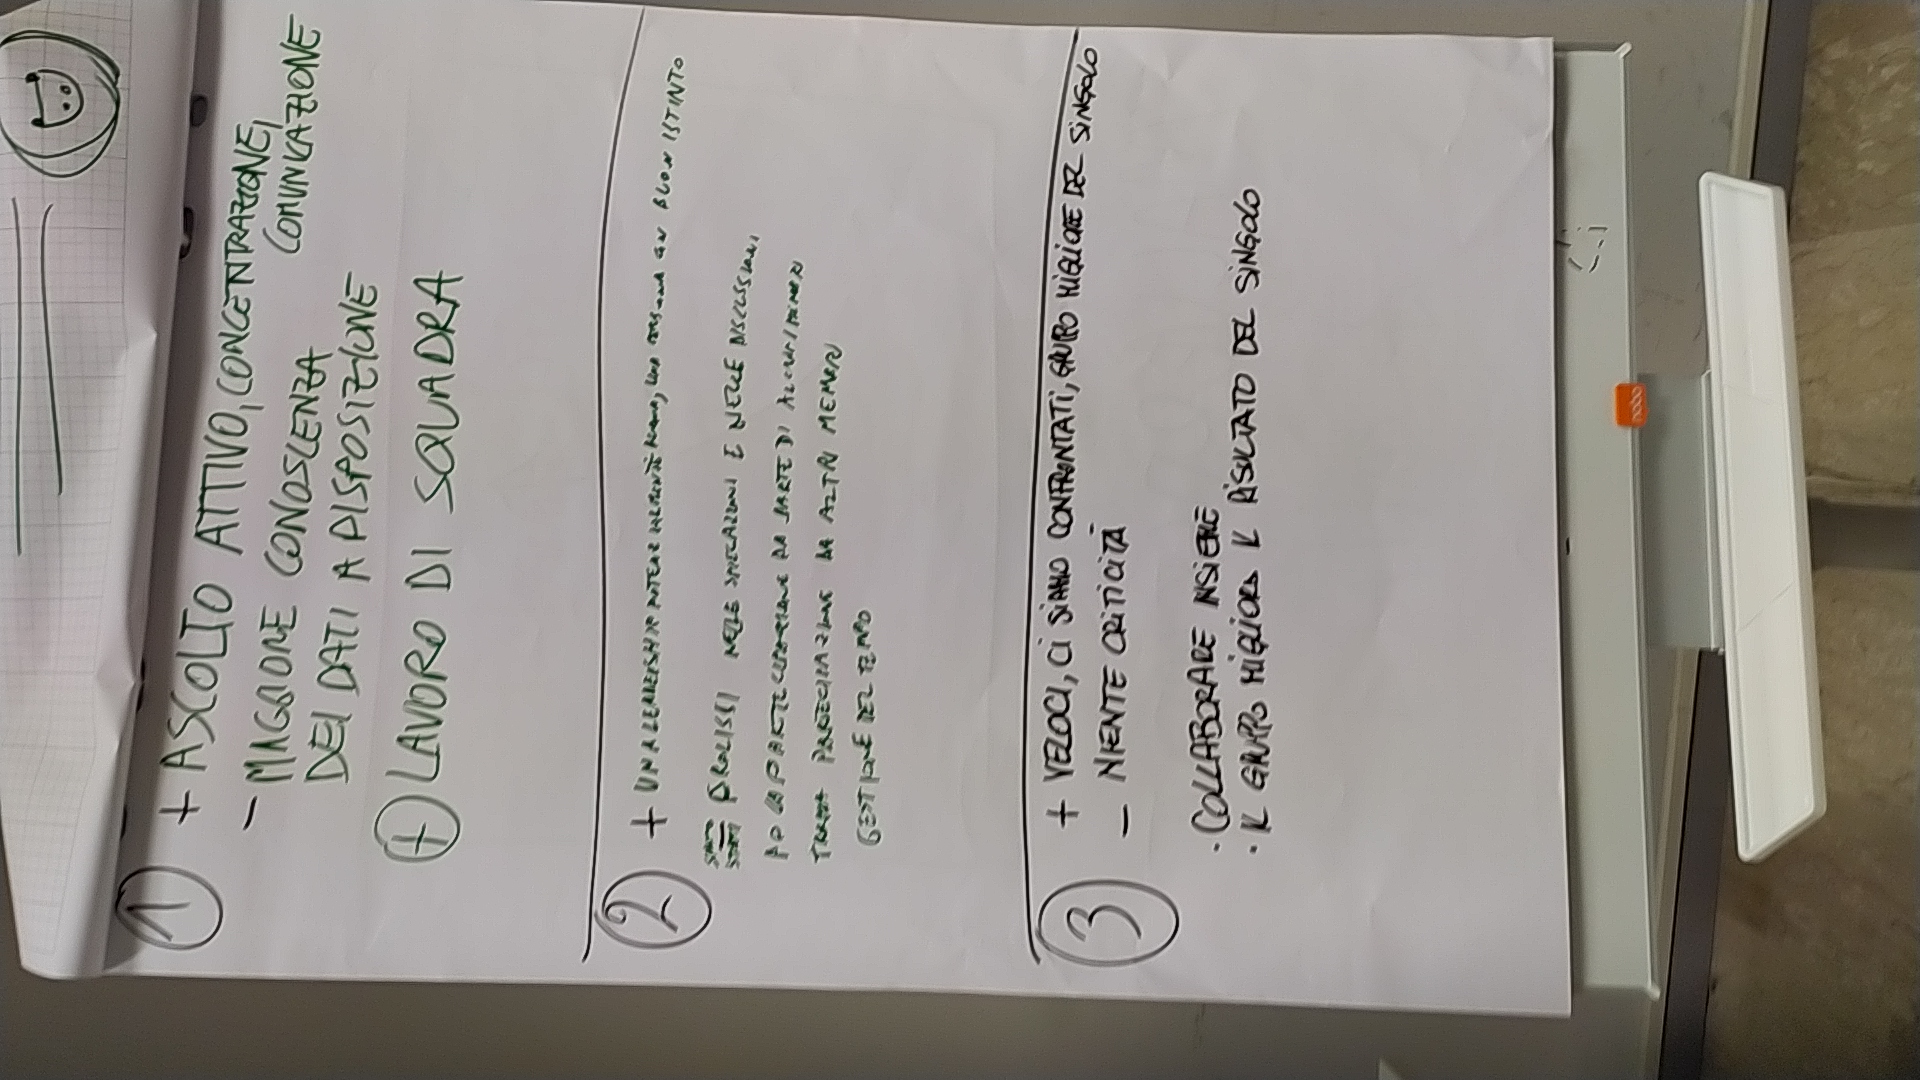 1
+ ASCOLTO ATTIVO, CONCENTRAZIONE,
COMUNICAZIONE
- MAGGIORE CONOSCENZA
DEI DATI A DISPOSIZIONE
+ LAVORO DI SQUADRA
2
+ UNA LEADERSHIP UNA PERSONA CON BUON ISTINTO
PROLISSI NELLE SPIEGAZIONI E NELLE DISCUSSIONI
POCA PARTECIPAZIONE DA PARTE DI ALCUNI MEMBRI
TROPPA PARTECIPAZIONE DA ALTRI MEMBRI
GESTIONE DEL TEMPO
3
+ VELOCI, CI SIAMO CONFRONTATI, GRUPPO MIGLIORE DEL SINGOLO
- NIENTE CRITICITÀ
· COLLABORARE INSIEME
· IL GRUPPO MIGLIORA IL RISULTATO DEL SINGOLO
nobo